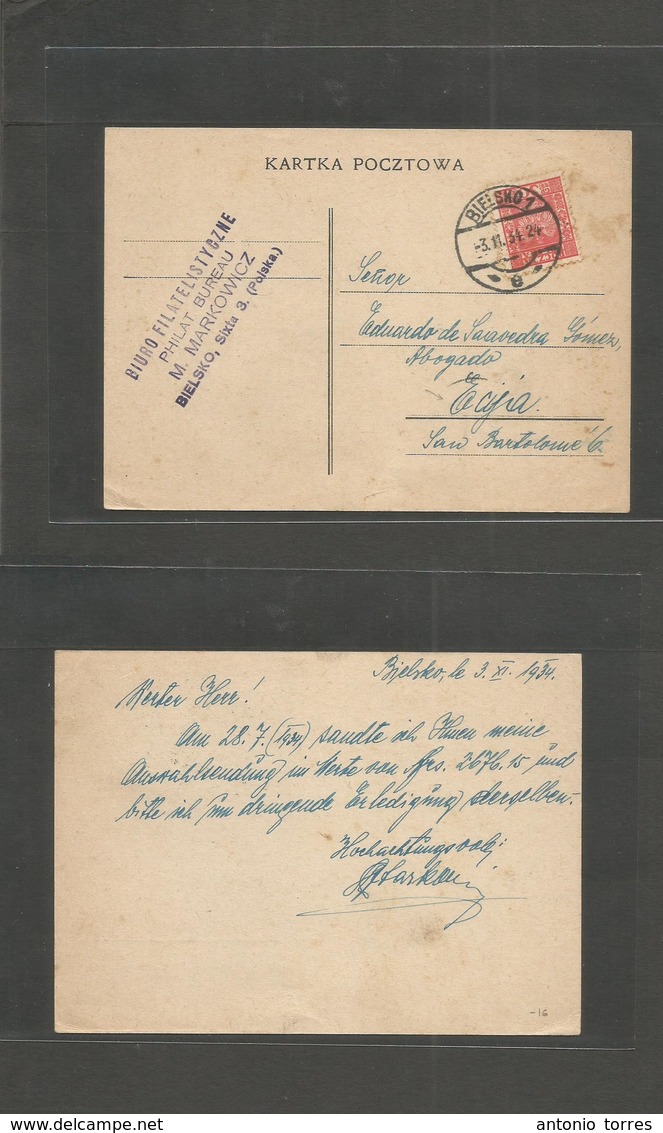 KARTKA POCZTOWA
BIURO FILATELISTYCZNE
PHILAT BUREAU
M. MARKOWICZ
BIELSKO, Sixta 3. (Polska.)
BIELSKO 1
-3.11.34.24
e
Señor
Eduardo de Saavedra Gómez,
Abogado
Ecija.
San Bartolomé 6.
Bielsko, le 3. XI. 1934.
Werter Herr!
Am 28.7. (1934) sandte ich Ihnen meine
Auswahlsendung im Werte von frs. 2676.15 und
bitte ich um dringende Erledigung derselben.
Hochachtungsvoll
-16
www.delcampe.net
antonio torres